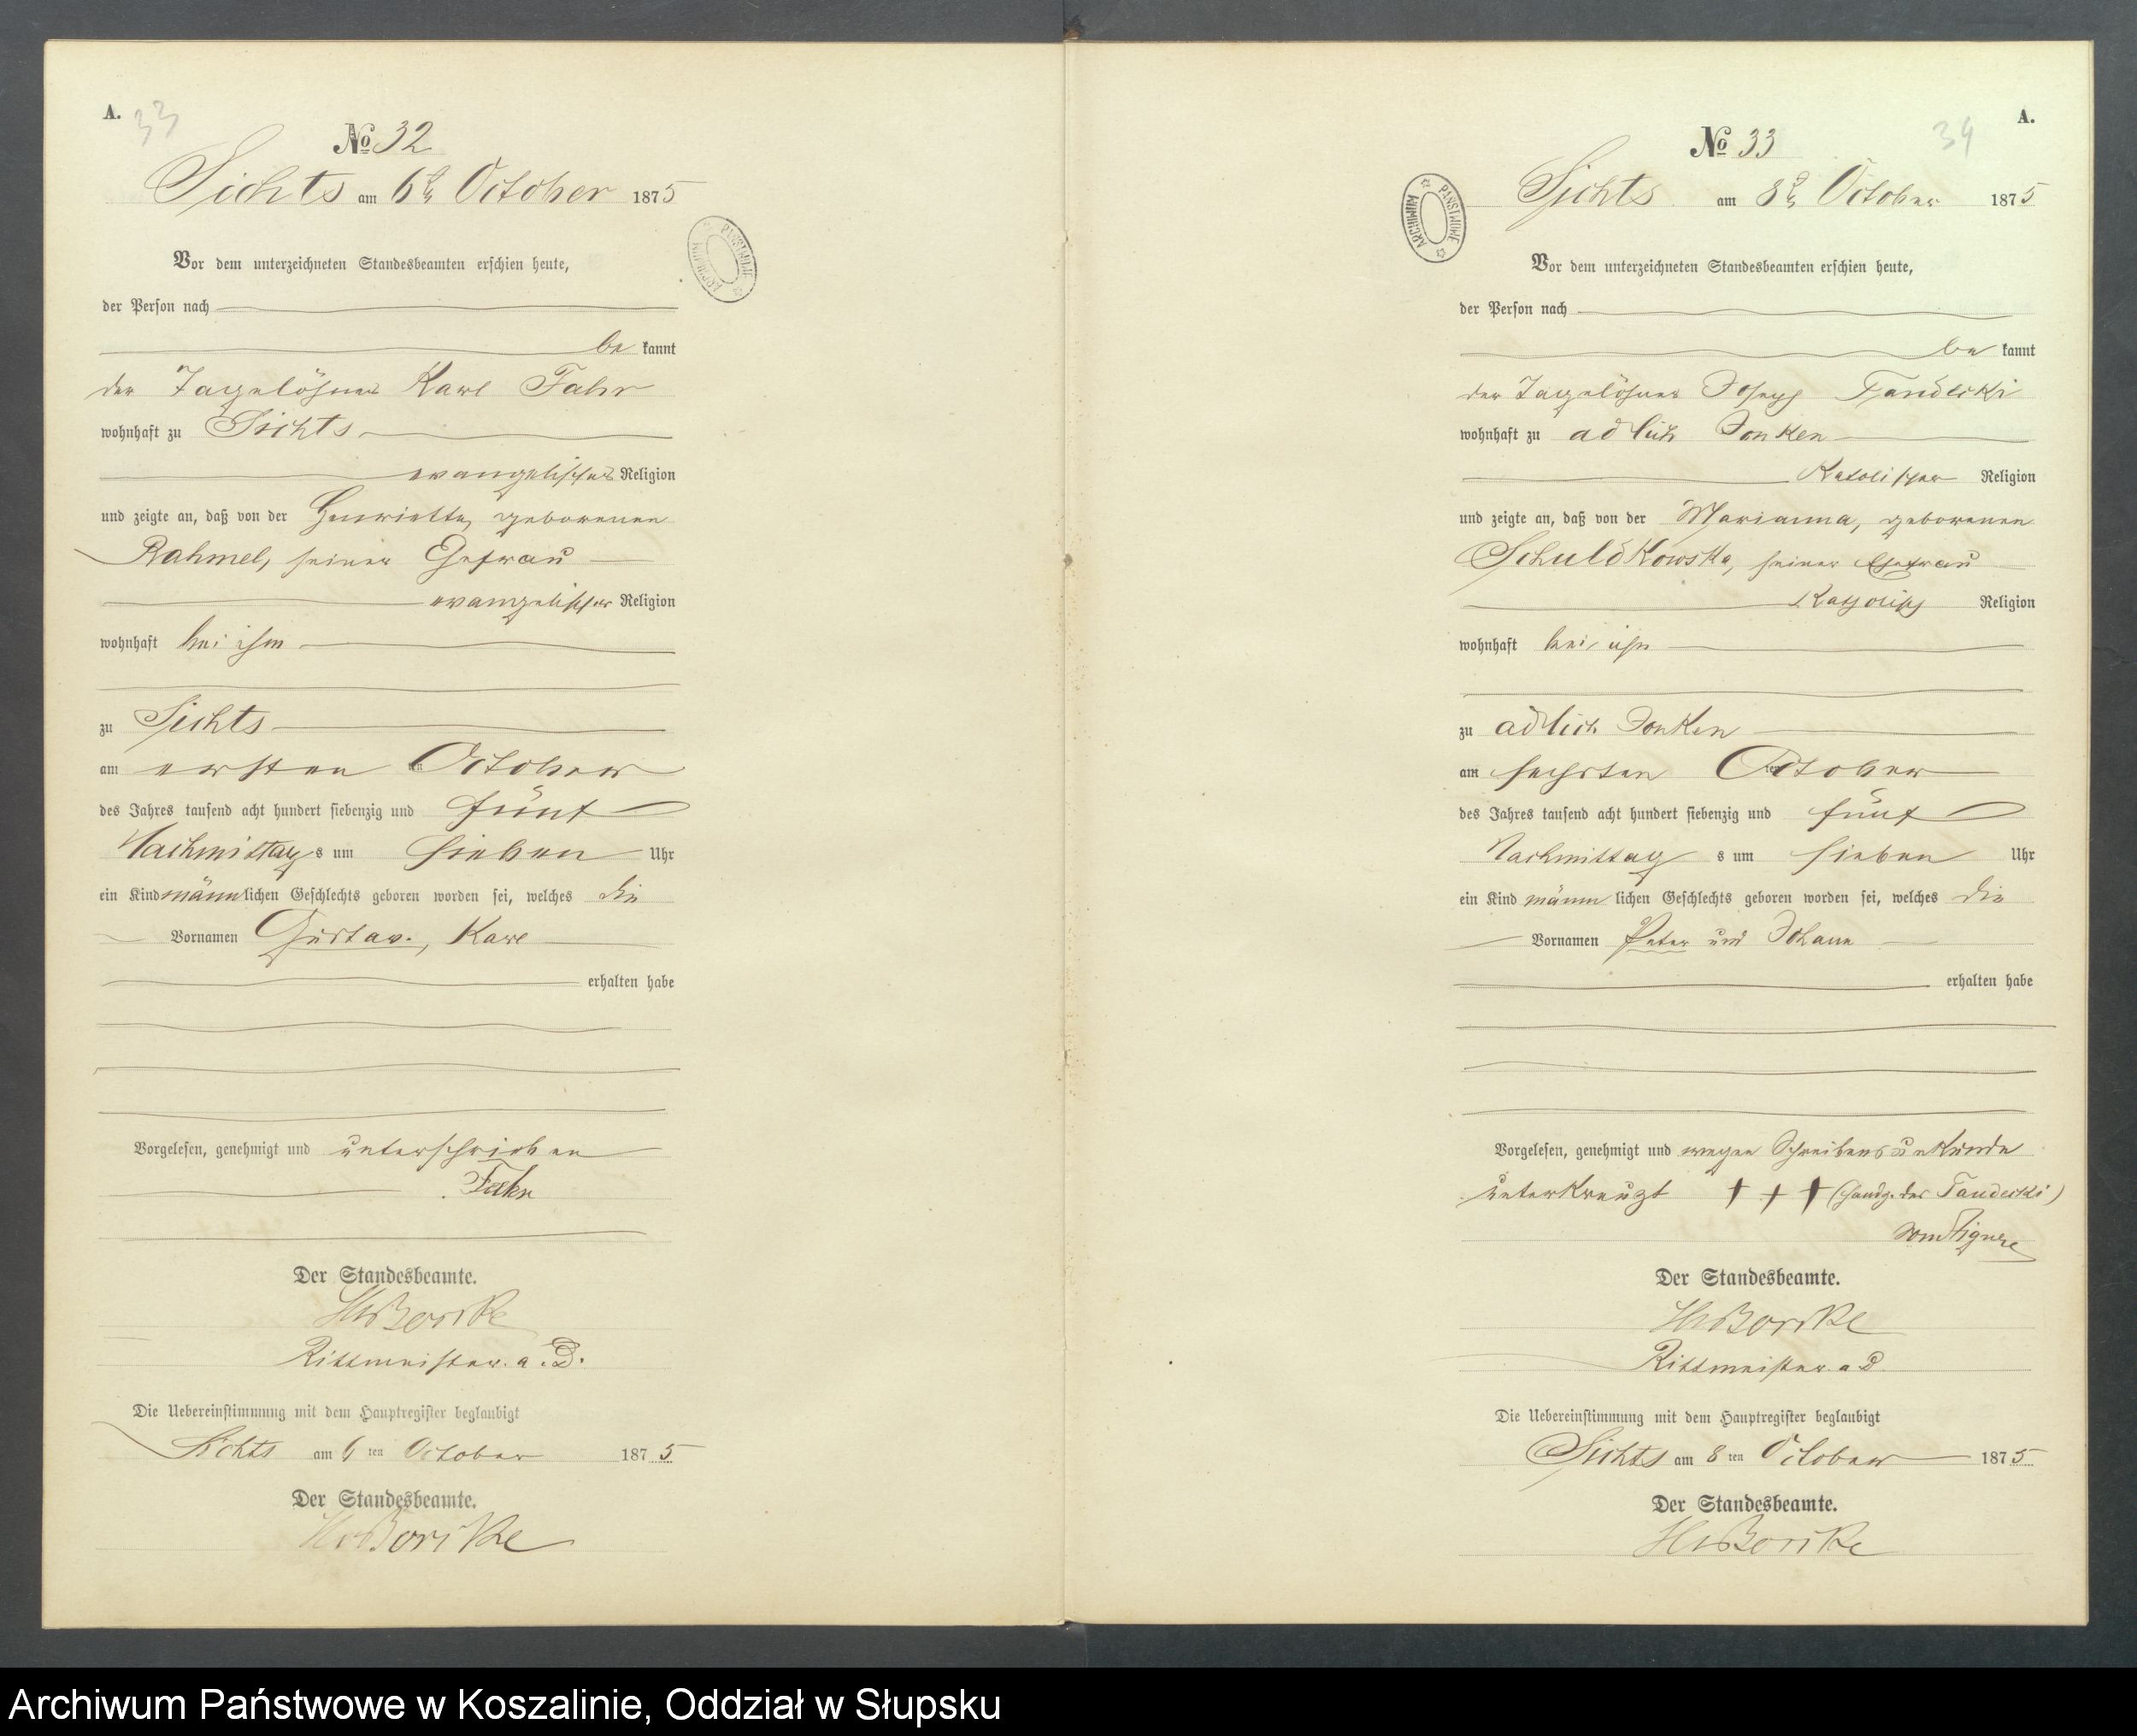 A.
33
No 32
Sichts am 6t October 1875
ARCHIWUM PAŃSTWOWE
Vor dem unterzeichneten Standesbeamten erschien heute,
der Person nach
be kannt
der Tagelöhner Karl Fahr
wohnhaft zu Sichts
evangelischer Religion
und zeigte an, daß von der Henriette, geborenen
Rahmel, seiner Ehefrau
evangelischer Religion
wohnhaft bei ihm
zu Sichts
am ersten ten October
des Jahres tausend acht hundert siebenzig und fünf
Nachmittag s um sieben Uhr
ein Kind männlichen Geschlechts geboren worden sei, welches die
Vornamen Gustav, Karl
erhalten habe
Vorgelesen, genehmigt und unterschrieben
Fahr
Der Standesbeamte.
Rittmeister a. D.
Die Uebereinstimmung mit dem Hauptregister beglaubigt
Sichts am 6 ten October 1875
Der Standesbeamte.
A.
34
No 33
Sichts am 8t October 1875
ARCHIWUM PAŃSTWOWE
Vor dem unterzeichneten Standesbeamten erschien heute,
der Person nach
be kannt
der Tagelöhner Joseph Tandecki
wohnhaft zu adlich Jonken
Katolischer Religion
und zeigte an, daß von der Marianna, geborenen
Schuldkowska, seiner Ehefrau
Katholisch Religion
wohnhaft bei ihm
zu adlich Jonken
am sechsten ten October
des Jahres tausend acht hundert siebenzig und fünf
Nachmittag s um sieben Uhr
ein Kind männ lichen Geschlechts geboren worden sei, welches die
Vornamen Peter und Johann
erhalten habe
Vorgelesen, genehmigt und wegen Schreibensunkunde
unterkreuzt + + + (Handz. des Tandecki)
Der Standesbeamte.
Rittmeister a D
Die Uebereinstimmung mit dem Hauptregister beglaubigt
Sichts am 8 ten October 1875
Der Standesbeamte.
Archiwum Państwowe w Koszalinie, Oddział w Słupsku